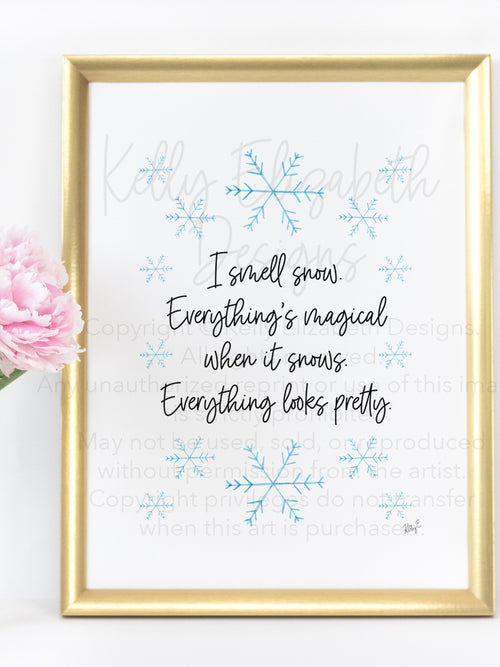 Kelly Elizabeth
Designs
I smell snow.
Everything's magical
when it snows.
Everything looks pretty.
Copyright © Kelly Elizabeth Designs.
Any unauthorized reprint or use of this ima
is strictly prohibited.
May not be used, sold, or reproduced
without permission from the artist.
Copyright privileges do not transfer
when this art is purchased.